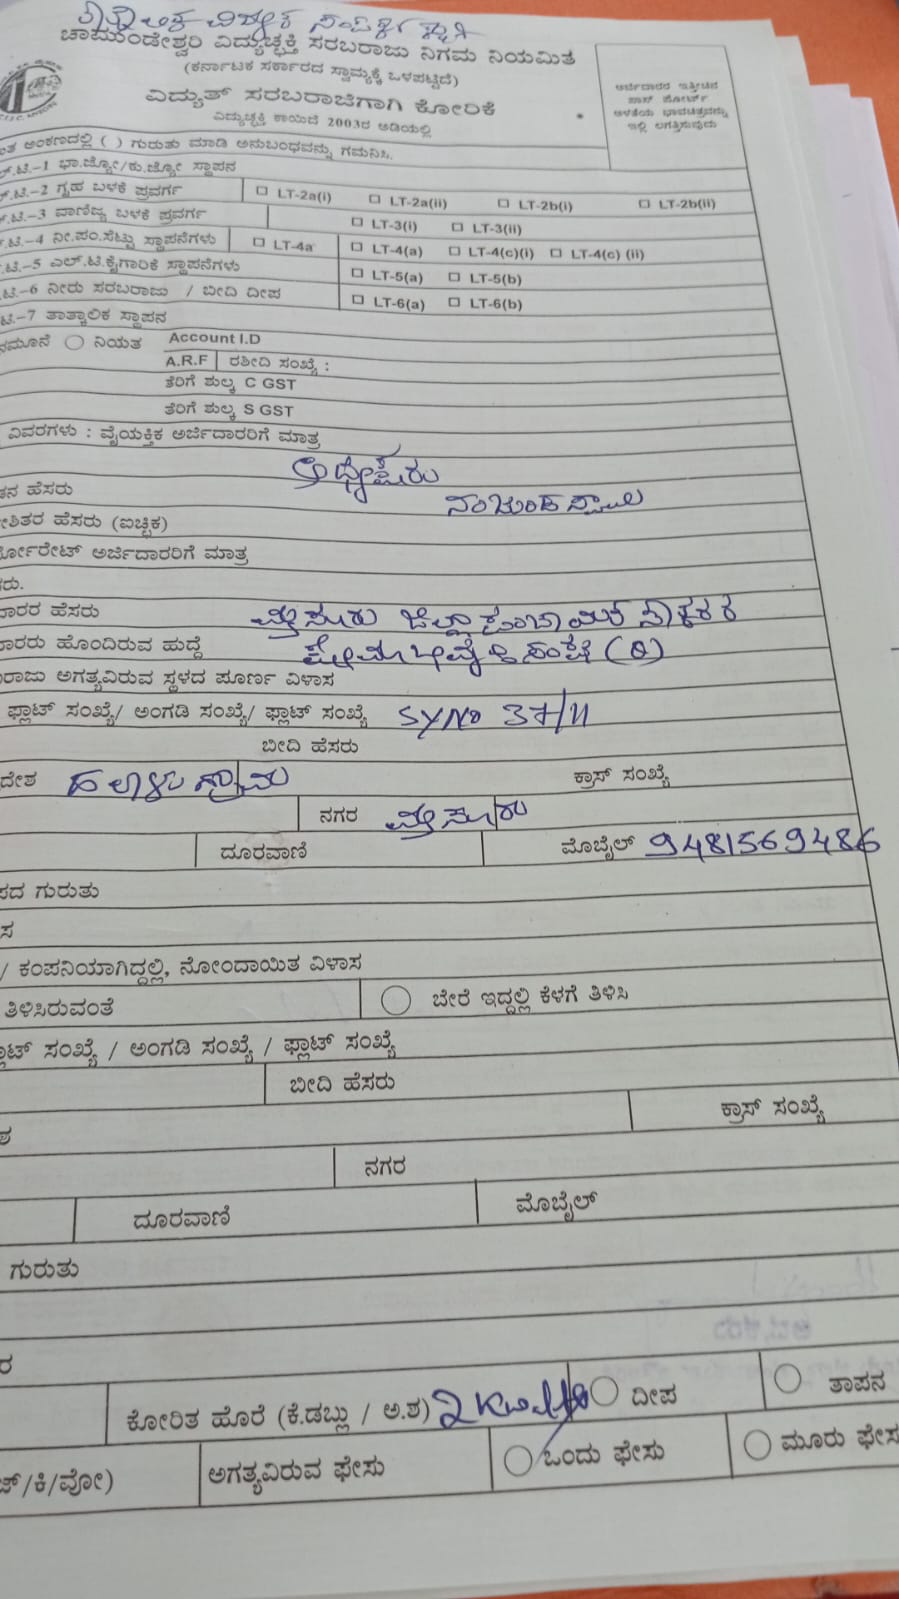 ಚಾಮುಂಡೇಶ್ವರಿ ವಿದ್ಯುಚ್ಛಕ್ತಿ ಸರಬರಾಜು ನಿಗಮ ನಿಯಮಿತ
(ಕರ್ನಾಟಕ ಸರ್ಕಾರದ ಸ್ವಾಮ್ಯಕ್ಕೆ ಒಳಪಟ್ಟಿದೆ)
ವಿದ್ಯುತ್ ಸರಬರಾಜಿಗಾಗಿ ಕೋರಿಕೆ
ವಿದ್ಯುಚ್ಛಕ್ತಿ ಕಾಯಿದೆ 2003ರ ಅಡಿಯಲ್ಲಿ
ಅರ್ಜಿದಾರರ ಇತ್ತೀಚಿನ
ಪಾಸ್ ಪೋರ್ಟ್
ಅಳತೆಯ ಭಾವಚಿತ್ರವನ್ನು
ಇಲ್ಲಿ ಲಗತ್ತಿಸುವುದು
ಅಂಕಣದಲ್ಲಿ ( ) ಗುರುತು ಮಾಡಿ ಅನುಬಂಧವನ್ನು ಗಮನಿಸಿ.
.ಟಿ.-1 ಭಾ.ಜ್ಯೋ/ಕು.ಜ್ಯೋ ಸ್ಥಾಪನ
.ಟಿ.-2 ಗೃಹ ಬಳಕೆ ಪ್ರವರ್ಗ LT-2a(i) LT-2a(ii) LT-2b(i) LT-2b(ii)
.ಟಿ.-3 ವಾಣಿಜ್ಯ ಬಳಕೆ ಪ್ರವರ್ಗ LT-3(i) LT-3(ii)
.ಟಿ.-4 ನೀ.ಪಂ.ಸೆಟ್ಟು ಸ್ಥಾಪನೆಗಳು LT-4a LT-4(a) LT-4(c)(i) LT-4(c) (ii)
.ಟಿ.-5 ಎಲ್.ಟಿ.ಕೈಗಾರಿಕೆ ಸ್ಥಾಪನೆಗಳು LT-5(a) LT-5(b)
.ಟಿ.-6 ನೀರು ಸರಬರಾಜು / ಬೀದಿ ದೀಪ LT-6(a) LT-6(b)
ಟಿ.-7 ತಾತ್ಕಾಲಿಕ ಸ್ಥಾಪನ
ನಮೂನೆ ನಿಯತ Account I.D
A.R.F ರಶೀದಿ ಸಂಖ್ಯೆ :
ತೆರಿಗೆ ಶುಲ್ಕ C GST
ತೆರಿಗೆ ಶುಲ್ಕ S GST
ವಿವರಗಳು : ವೈಯಕ್ತಿಕ ಅರ್ಜಿದಾರರಿಗೆ ಮಾತ್ರ
ಅಧ್ಯಕ್ಷರು
ಹೆಸರು ನಂಜುಂಡಸ್ವಾಮಿ
ಹೆಸರು (ಐಚ್ಛಿಕ)
ರ್ಪೋರೇಟ್ ಅರ್ಜಿದಾರರಿಗೆ ಮಾತ್ರ
ರು.
ದಾರರ ಹೆಸರು ಮೈಸೂರು ಜಿಲ್ಲಾ ಪಂಚಾಯತ್ ನೌಕರರ
ದಾರರು ಹೊಂದಿರುವ ಹುದ್ದೆ
ರಾಜು ಅಗತ್ಯವಿರುವ ಸ್ಥಳದ ಪೂರ್ಣ ವಿಳಾಸ
ಫ್ಲಾಟ್ ಸಂಖ್ಯೆ/ ಅಂಗಡಿ ಸಂಖ್ಯೆ/ ಫ್ಲಾಟ್ ಸಂಖ್ಯೆ SYNO 37/11
ಬೀದಿ ಹೆಸರು
ದೇಶ ಗ್ರಾಮ ಕ್ರಾಸ್ ಸಂಖ್ಯೆ
ನಗರ ಮೈಸೂರು
ದೂರವಾಣಿ ಮೊಬೈಲ್ 9481569486
ಪದ ಗುರುತು
ಸ
/ ಕಂಪನಿಯಾಗಿದ್ದಲ್ಲಿ, ನೋಂದಾಯಿತ ವಿಳಾಸ
ತಿಳಿಸಿರುವಂತೆ ಬೇರೆ ಇದ್ದಲ್ಲಿ ಕೆಳಗೆ ತಿಳಿಸಿ
ಲಾಟ್ ಸಂಖ್ಯೆ / ಅಂಗಡಿ ಸಂಖ್ಯೆ / ಫ್ಲಾಟ್ ಸಂಖ್ಯೆ
ಬೀದಿ ಹೆಸರು
ಶ ಕ್ರಾಸ್ ಸಂಖ್ಯೆ
ನಗರ
ದೂರವಾಣಿ ಮೊಬೈಲ್
ಗುರುತು
ರ
ಕೋರಿತ ಹೊರೆ (ಕೆ.ಡಬ್ಲು / ಅ.ಶ) ದೀಪ ತಾಪನ
ಜ್/ಕಿ/ವೋ) ಅಗತ್ಯವಿರುವ ಫೇಸು ಒಂದು ಫೇಸು ಮೂರು ಫೇಸ